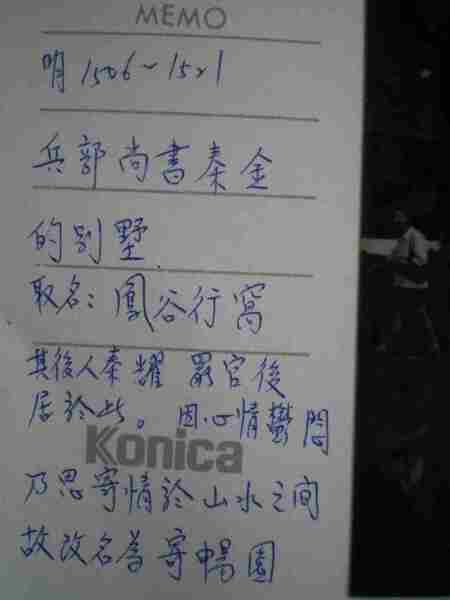 MEMO
明 1506~1521
兵部尚書秦金
的別墅
取名：鳳谷行窩
其後人秦耀 罷官後
居於此。因心情鬱悶
Konica
乃思寄情於山水之间
故改名為寄暢園